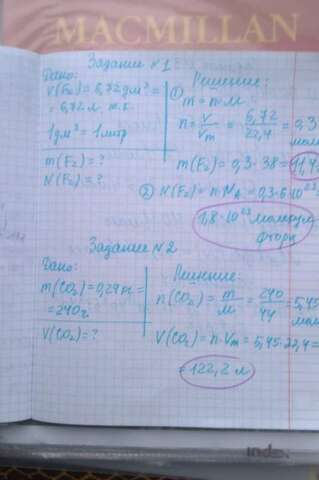 MACMILLAN
Задание №1
Дано:
V(F₂)=6,72 дм³=
=6,72 л
1дм³=1литр
m(F₂)=?
N(F₂)=?
Решение:
① m=n·M
n=V/Vm=6,72/22,4=0,3
моль
m(F₂)=0,3·38=11,4
② N(F₂)=n·NA=0,3·6·10²³
1,8·10²³ молекул
фтора
Задание №2
Дано:
m(CO₂)=0,24кг=
=240г
V(CO₂)=?
Решение:
n(CO₂)=m/M=240/44=5,45
моль
V(CO₂)=n·Vm=5,45·22,4=
=122,2 л
INDEX